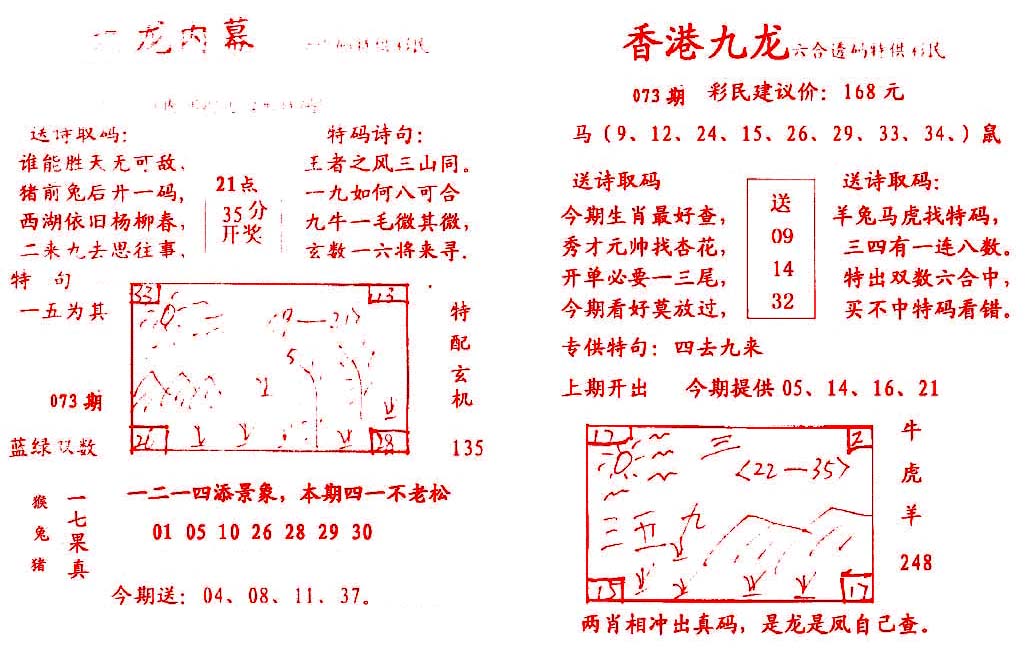 龙内幕
送诗取码：
谁能胜天无可敌、
猪前兔后开一码，
西湖依旧杨柳春，
二来九去思往事、
21点
35分
开奖
特码诗句：
王者之风三山同。
一九如何八可合
九牛一毛微其微，
玄数一六将来寻.
特 句
一五为其
073期
蓝绿双数
33
13
〈9—21〉
5
26
28
特配玄机
135
猴兔猪
一七果真
一二一四添景象，本期四一不老松
01 05 10 26 28 29 30
今期送：04、08、11、37。
香港九龙六合透码特供彩民
073期 彩民建议价：168元
马（9、12、24、15、26、29、33、34、）鼠
送诗取码
今期生肖最好查，
秀才元帅找杏花，
开单必要一三尾，
今期看好莫放过，
送
09
14
32
送诗取码：
羊兔马虎找特码，
三四有一连八数。
特出双数六合中，
买不中特码看错。
专供特句：四去九来
上期开出 今期提供05、14、16、21
17
2
三
〈22—35〉
三五九
15
17
牛虎羊
248
两肖相冲出真码，是龙是凤自己查。